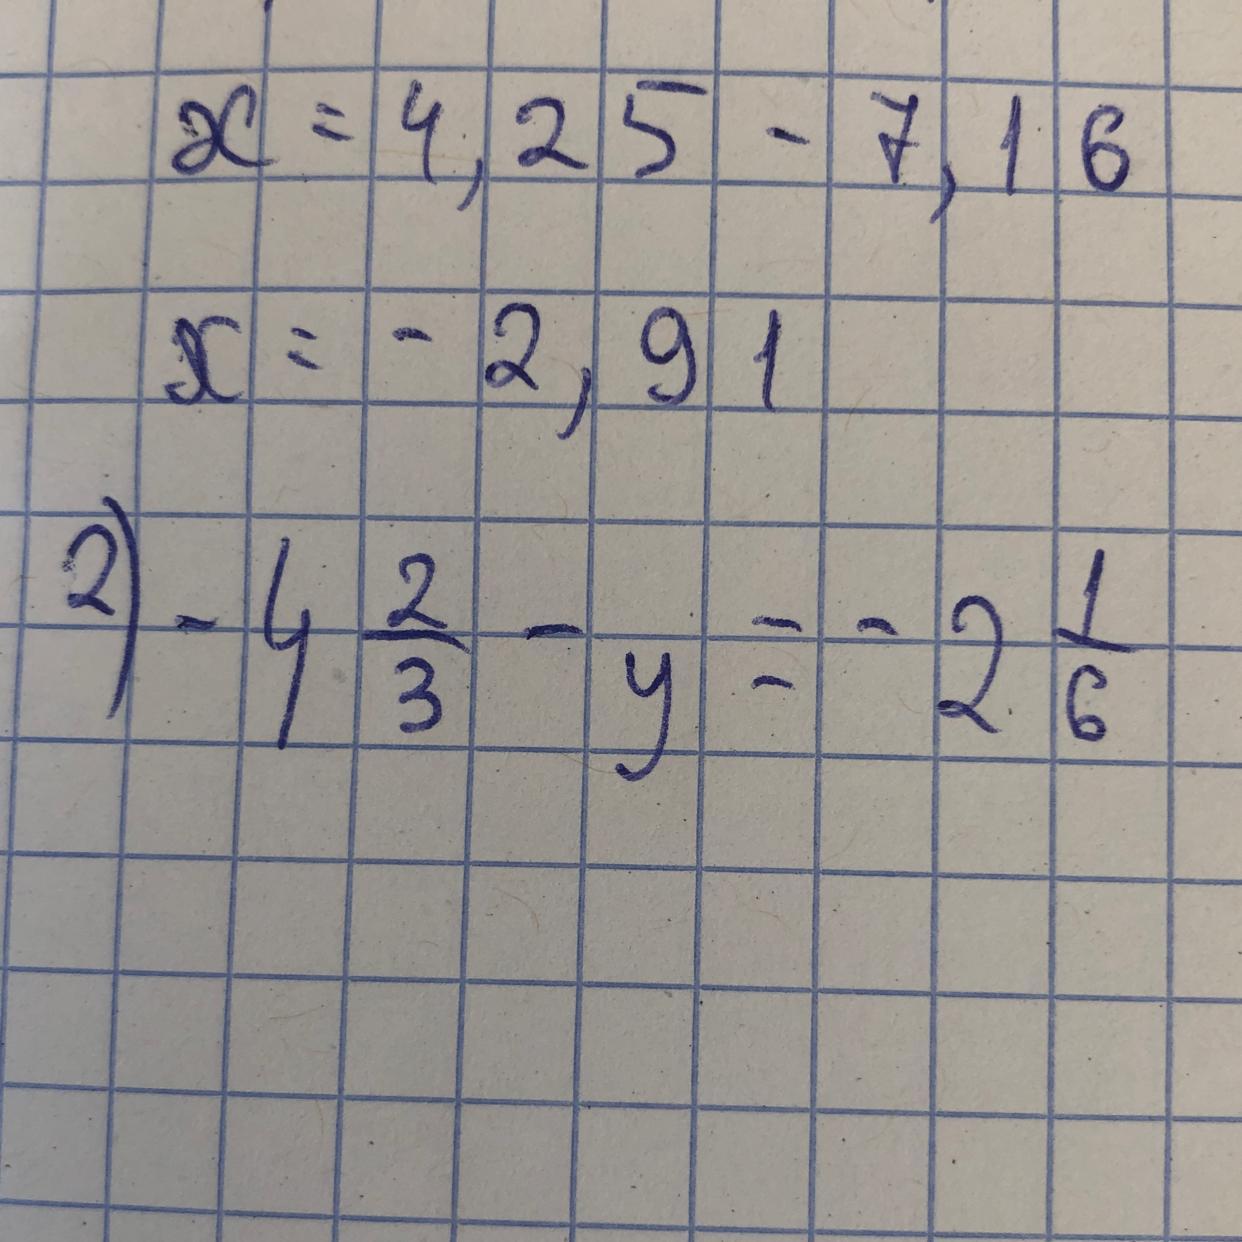 x = 4,25 - 7,16
x = - 2,91
2) - 4 2/3 - y = - 2 1/6